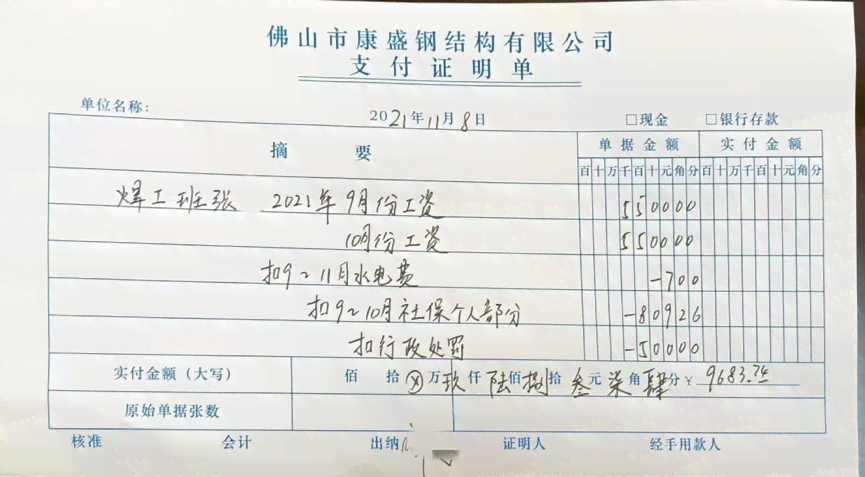 佛山市康盛钢结构有限公司
支付证明单
单位名称: 2021年11月8日 □现金 □银行存款
摘要 单据金额 实付金额
百十万千百十元角分 百十万千百十元角分
焊工班张 2021年9月份工资 550000
10月份工资 550000
扣9~11月水电费 -700
扣9~10月社保个人部分 -80926
扣行政处罚 -50000
实付金额(大写) 佰 拾ⓧ万玖仟陆佰捌拾叁元柒角肆分¥ 9683.74
原始单据张数
核准 会计 出纳 证明人 经手用款人